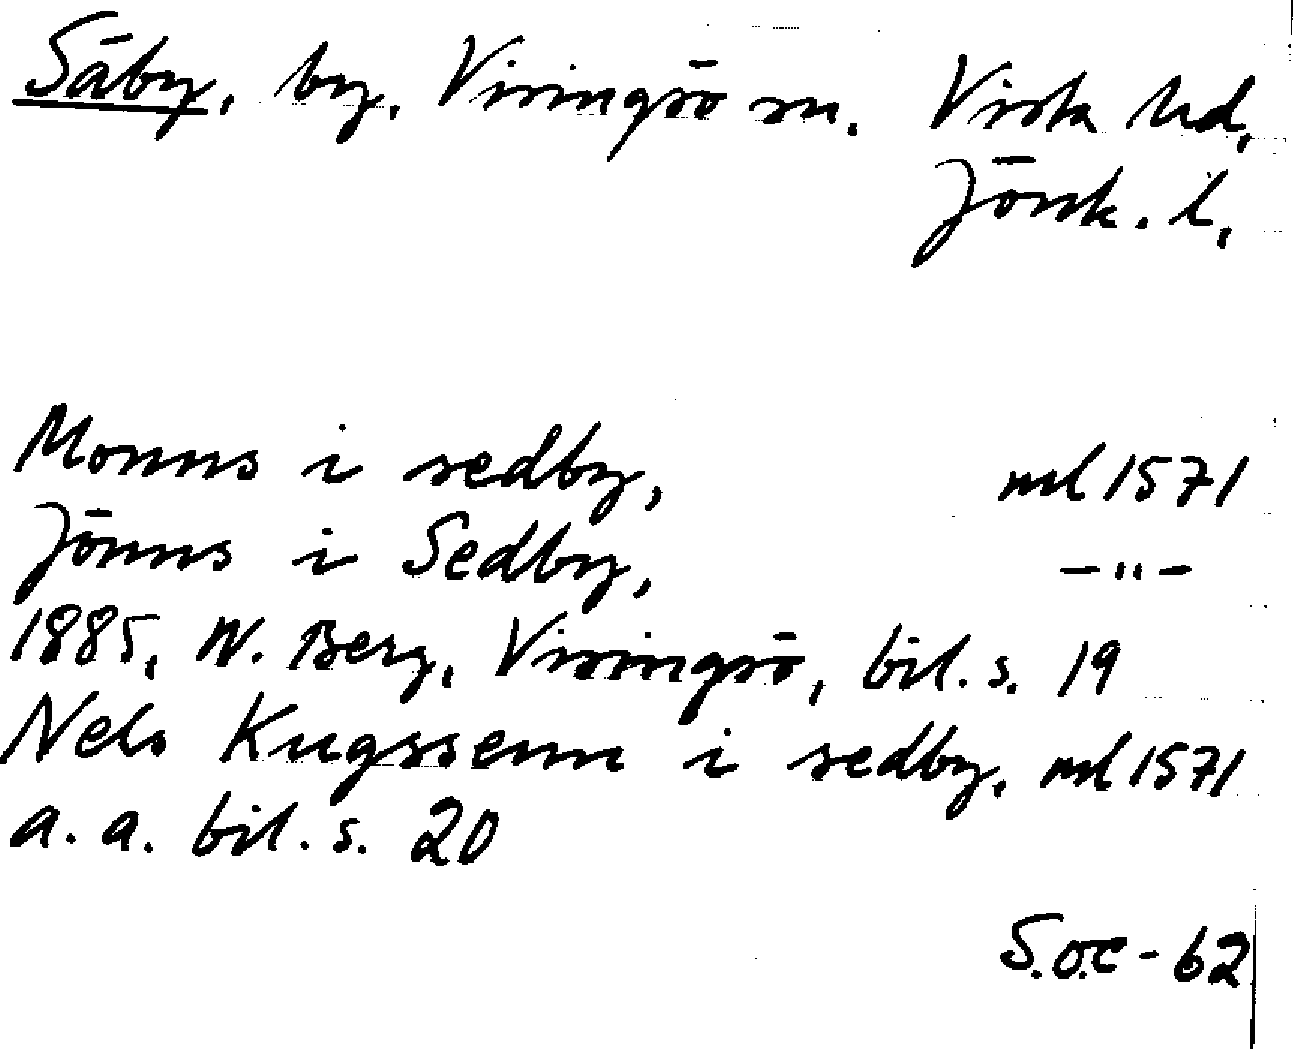 Säby, by, Visingsö sn. Vista hd,
Jönk. l.
Monns i sedby, ml 1571
Jönns i Sedby, —"—
1885, W. Berg, Visingsö, bil. s. 19
Nels Kugssenn i sedby, ml 1571
a. a. bil. s. 20
S.o.c - 62